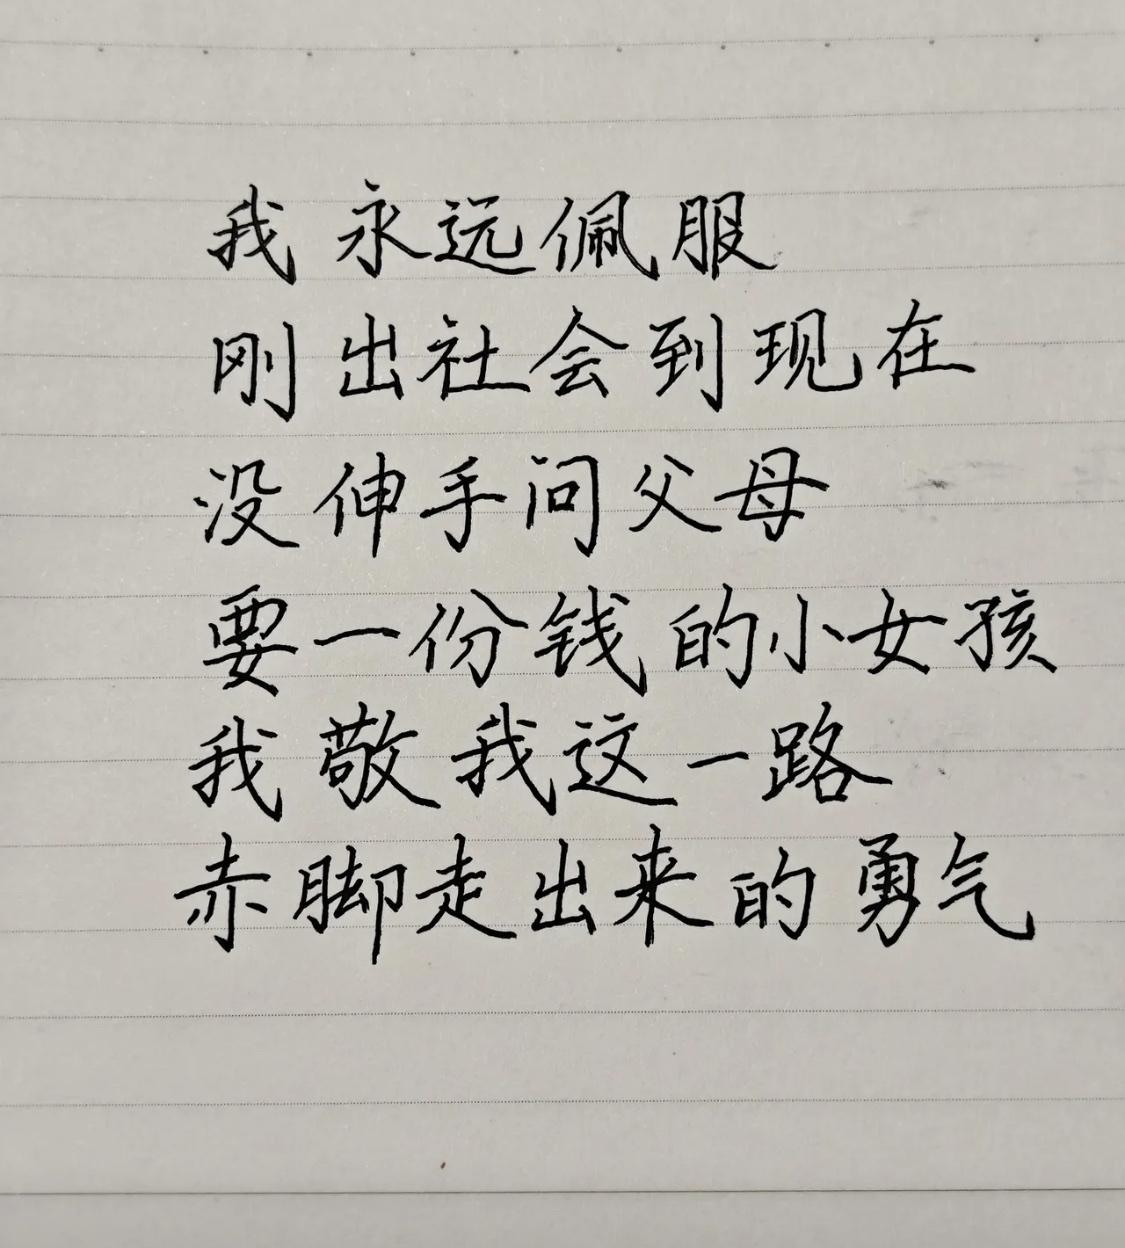 我永远佩服
刚出社会到现在
没伸手问父母
要一份钱的小女孩
我敬我这一路
赤脚走出来的勇气